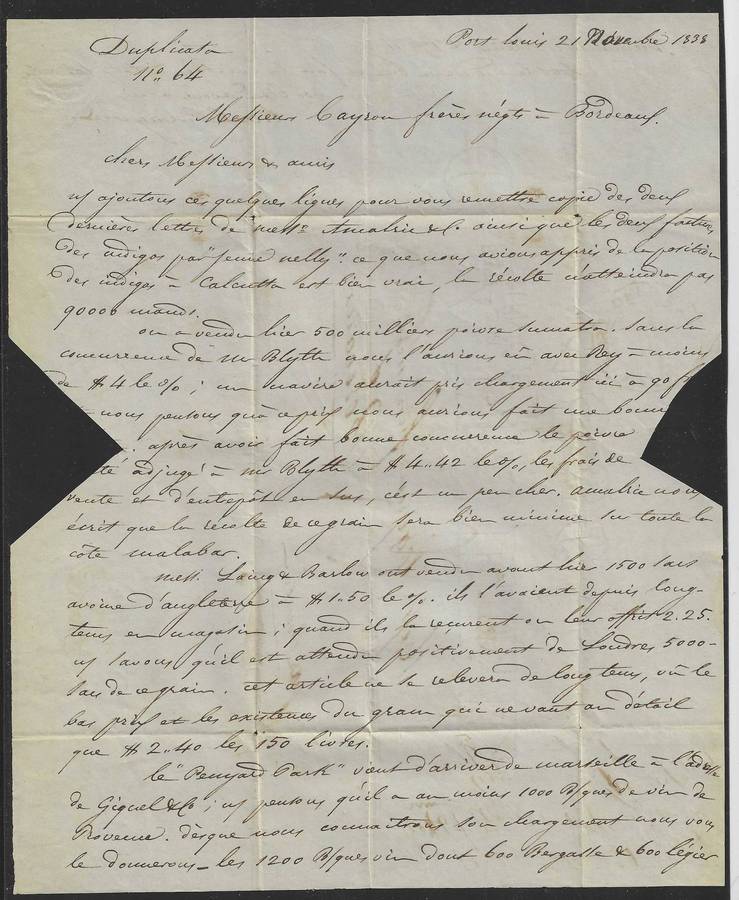 Duplicata
n° 64
Port Louis 21 Novembre 1838
Messieurs Cayrou frères négts à Bordeaux.
chers Messieurs & amis
ns ajoutons ces quelques lignes pour vous remettre copie des deux
dernières lettres de Mess. Amalric & C. ainsi que les deux factures
des indigos par "Jeune Nelly". ce que nous avions appris de la position
des indigos à Calcutta est bien vrai, la récolte n'atteindra pas
90000 mands.
on a vendu hier 500 milliers poivre Sumatra. Sans la
concurrence de Mr Blyth nous l'aurions eu avec Rey à moins
de $ 4 le %; un navire aurait pris chargement ici à 90 f
nous pensons qu'à ce prix nous aurions fait une bonne
après avoir fait bonne concurrence le poivre
été adjugé à Mr Blyth à $ 4..42 le %, les frais de
vente et d'entrepôt en sus, c'est un peu cher. Amalric nous
écrit que la récolte de ce grain sera bien minime sur toute la
côte Malabar.
Mess. Laing & Barlow ont vendu avant hier 1500 sacs
avoine d'angleterre à $ 1..50 le %. ils l'avaient depuis long-
tems en magasin; quand ils la reçurent on leur offrit 2.25.
ns savons qu'il est attendu positivement de Londres 5000-
sacs de ce grain. cet article ne se relevera de longtems, vu le
bas prix et les existences du gram qui ne vaut au détail
que $ 2..40 les 150 livres.
le "Penyard Park" vient d'arriver de Marseille à l'adresse
de Giquel & C°; ns pensons qu'il a au moins 1000 B/ques de vin de
Provence. dès que nous connaîtrons son chargement nous vous
le donnerons_ les 1200 B/ques vin dont 600 Bergasse & 600 léger